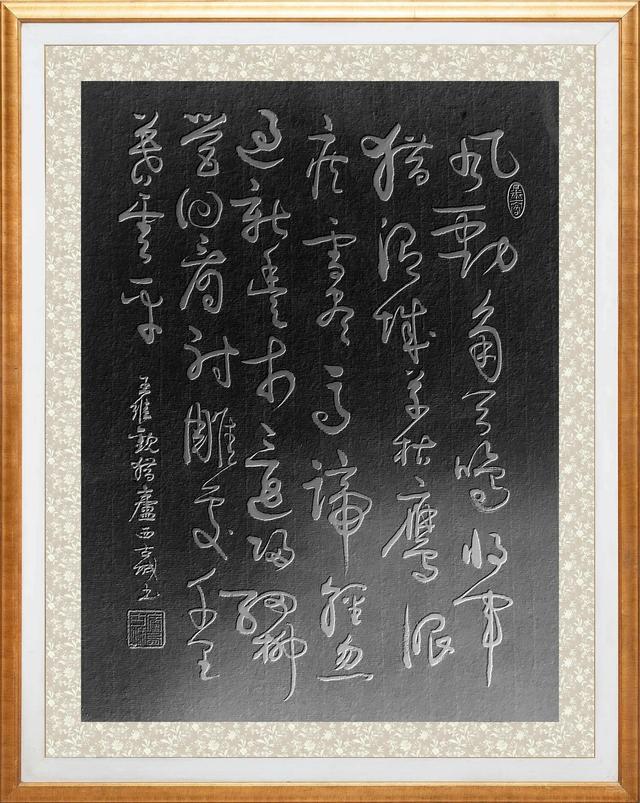 風勁角弓鳴將軍
獵渭城草枯鷹眼
疾雪盡馬蹄輕忽
過新豐市還歸細柳
營回看射雕處千里
暮雲平
王維觀獵廬西